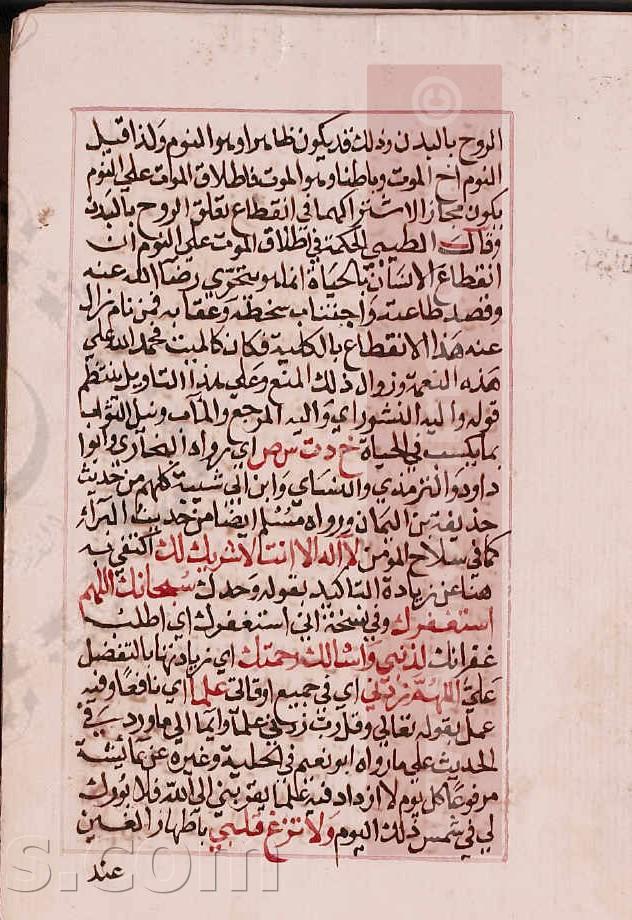 الروح بالبدن وذلك قد يكون ظاهرا وهو النوم ولذا قيل
النوم اخ الموت وباطنا وهو الموت فاطلاق الموت على النوم
يكون مجازا لاشتراكهما في انقطاع تعلق الروح بالبدن
وقال الطيبي الحكمة في اطلاق الموت على النوم ان
انقطاع الانسان بالحياة انما هو بتحري رضا الله عنه
وقصد طاعته واجتناب سخطه وعقابه فمن نام زال
عنه هذا الانقطاع بالكلية فكان كالميت فحمد الله على
هذه النعمة وزوال ذلك المنع وعلى هذا التاويل ينتظم
قوله واليه النشور اي واليه المرجع والمآب ونيل الثواب
بما يكسب في الحياة خ د ت س مص اي رواه البخاري وابوا
داود والترمذي والنساي وابن ابي شيبة كلهم من حديث
حذيفة بن اليمان ورواه مسلم ايضا من حديث البراء
كما في سلاح المومن لا اله الا انت لا شريك لك اكتفي به
هنا عن زيادة التاكيد بقوله وحدك سبحانك اللهم
استغفرك وفي نسخة اني استغفرك اي اطلب
غفرانك لذنبي واسالك رحمتك اي زيادتها بالتفضل
علي اللهم زدني اي في جميع اوقاتي علما اي نافعا وفيه
عمل بقوله تعالى وقل رب زدني علما وايما الى ما ورد في
الحديث على ما رواه ابو نعيم في الحلية وغيره عن عائشة
مرفوعا كل يوم لا ازداد فيه علما يقربني الى الله فلا بورك
لي في شمس ذلك اليوم ولا تزغ قلبي باظهار الغين
عند
s.com